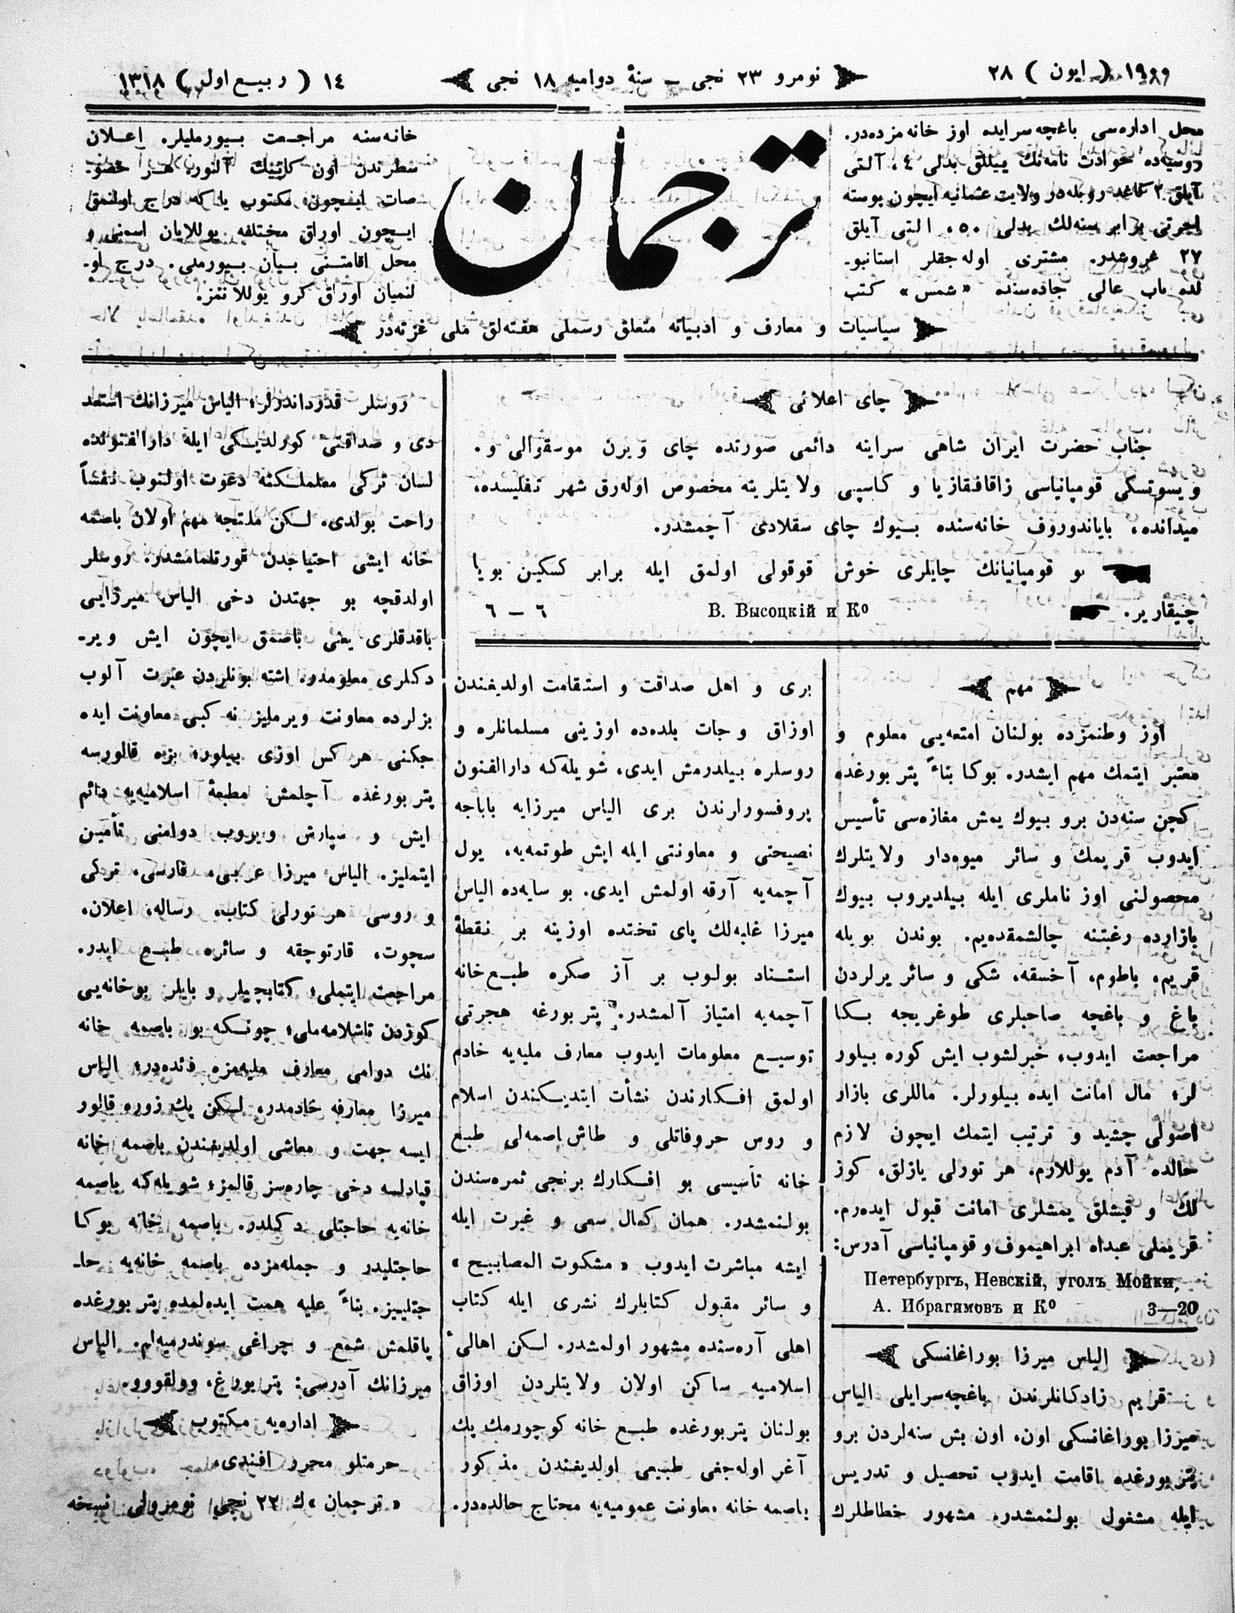 ١٩٠٠ ( ایون ) ٢٨
نومرو ٢٣ نجی ـ سنۀ دوامیه ١٨ نجی
١٤ ( ربیع اول ) ١٣١٨
محل اداره‌سی باغچه سرایده اوز خانه مزده‌در.
روسیه‌ده حوادث نامه‌نك ییللق بدلی ٤، آلتی
آیلق ٢ كاغد روبله‌در ولایت عثمانیه ایچون پوسته
اجرتی برابر سنه‌لك بدلی ٥٠، التی آیلق
٢٧ غروشدر. مشتری اوله‌جقلر استانبو-
لده باب عالی جاده‌سنده «شمس» كتب
ترجمان
خانه‌سنه مراجعت بیورملیلر. اعلان
سطرندن اون كاپیك آلنور، هر خصو-
صات ایچون مكتوب یا كه درج اولنمق
ایچون اوراق مختلفه یوللایان اسمنی و
محل اقامتنی بیان بیورملی. درج او-
لنمیان اوراق كرو یوللاتمز.
سیاسیات و معارف و ادبیاته متعلق رسملی هفته‌لق ملی غزته‌در
چای اعلانی
جناب حضرت ایران شاهی سراینه دائمی صورتده چای ویرن موسقوالی و.
ویسوتسكی قومپانیاسی زاقافقازیا و كاسپی ولایتلرینه مخصوص اوله‌رق شهر تفلیسده،
میدانده، بایاندوروف خانه‌سنده بیوك چای سقلادی آچمشدر.
بو قومپانیانك چایلری خوش قوقولی اولمق ایله برابر كسكین بویا
چیقاریر.
В. Высоцкій и К⁰
٦ – ٦
مهم
اوز وطنمزده بولنان امتعه‌یی معلوم و
معتبر ایتمك مهم ایشدر. بوكا بناءً پتربورغده
كچن سنه‌دن برو بیوك یمش مغازه‌سی تأسیس
ایدوب قریمك و سائر میوه‌دار ولایتلرك
محصولنی اوز ناملری ایله بیلدیروب بیوك
بازارده رغبتنه چالشمقده‌یم. بوندن بویله
قریم، باطوم، آخسقه، شكی و سائر یرلردن
باغ و باغچه صاحبلری طوغریجه بكا
مراجعت ایدوب، خبرلشوب ایش كوره بیلور
لر؛ مال امانت ایده بیلورلر. ماللری بازار
اصولی چشید و ترتیب ایتمك ایچون لازم
حالده آدم یوللارم. هر تورلی یازلق، كوز
لك و قیشلق یمشلری امانت قبول ایده‌رم.
قریملی عبداه ابراهیموف و قومپانیاسی آدرس:
Петербургъ, Невскій, уголъ Мойки,
А. Ибрагимовъ и К⁰ 3—20
الیاس میرزا بوراغانسكی
قریم زادكانلرندن باغچه‌سرایلی الیاس
میرزا بوراغانسكی اون، اون بش سنه‌لردن برو
پتربورغده اقامت ایدوب تحصیل و تدریس
ایله مشغول بولنمشدر. مشهور خطاطلرك
بری و اهل صداقت و استقامت اولدیغندن
اوزاق وجات بلده‌ده اوزینی مسلمانلره و
روسلره بیلدرمش ایدی، شویله‌كه دارالفنون
پروفسورارندن بری الیاس میرزایه باباجه
نصیحتی و معاونتی ایله ایش طوتمه‌یه، یول
آچمه‌یه آرقه اولمش ایدی. بو سایه‌ده الیاس
میرزا غلبه‌لك پای تختده اوزینه بر نقطۀ
استناد بولوب بر آز صكره طبع‌خانه
آچمه‌یه امتیاز آلمشدر. پتربورغه هجرتی
توسیع معلومات ایدوب معارف ملیه‌یه خادم
اولمق افكارندن نشأت ایتدیكندن اسلام
و روس حروفاتلی و طاش باصمه‌لی طبع
خانه تأسیسی بو افكارك برنجی ثمره‌سندن
بولنمشدر. همان كمال سعی و غیرت ایله
ایشه مباشرت ایدوب «مشكوت المصابیح»
و سائر مقبول كتابلرك نشری ایله كتاب
اهلی آره‌سنده مشهور اولمشدر. لكن اهالی
اسلامیه ساكن اولان ولایتلردن اوزاق
بولنان پتربورغده طبع خانه كوچورمك پك
آغر اوله‌جغی طبیعی اولدیغندن مذكور
باصمه خانه معاونت عمومیه‌یه محتاج حالده‌در.
روسلر قدرداندرلر؛ الیاس میرزانك استعد
دی و صداقتی كورلدیكی ایله دارالفنونده
لسان تركی معلملكنه دعوت اولنوب نفساً
راحت بولدی، لكن ملتجه مهم اولان باصمه
خانه ایشی احتیاجدن قورتلمامشدر. روسلر
اولدقچه بو جهتدن دخی الیاس میرزایی
باقدقلری یعنی باصمق ایچون ایش ویر-
دكلری معلومدر. اشته بونلردن عبرت آلوب
بزلرده معاونت ویرملیز نه كبی معاونت ایده
جكنی هر كس اوزی بیلور؛ بزه قالورسه
پتربورغده آچلمش مطبعۀ اسلامیه‌یه دائم
ایش و سپارش ویروب دوامنی تأمین
ایتملیز. الیاس میرزا عربی، فارسی، تركی
و روسی هر تورلی كتاب، رساله، اعلان،
سچوت، قارتوچقه و سائره طبع ایدر.
مراجعت ایتملی؛ كتابچیلر و بایلر بوخانه‌یی
كوزدن تاشلامه‌ملی؛ چونكه بو باصمه خانه
نك دوامی معارف ملیه‌مزه فائده‌در؛ الیاس
میرزا معارفه خادمدر، لكن پك زوره قالور
ایسه جهت و معاشی اولدیغندن باصمه خانه
قپادلسه دخی چاره‌سز قالمز؛ شویله‌كه باصمه
خانه‌یه حاجتلی دكلدر. باصمه خانه بوكا
حاجتلیدر و جمله‌مزده باصمه خانه‌یه حا-
جتلییز. بناءً علیه همت ایده‌لمده پتربورغده
یاقلمش شمع و چراغی سوندرمیه‌لم. الیاس
میرزانك آدرسی: پتربورغ،
اداره‌یه مكتوب
حرمتلو محرر افندی،
«ترجمان»ك ٢٢ نچی نومرولی نسخه